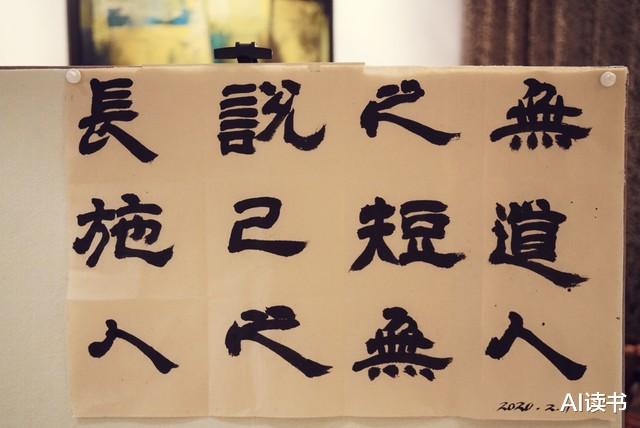 無道人
之短無
說己之
長施人
2020.2.
AI读书